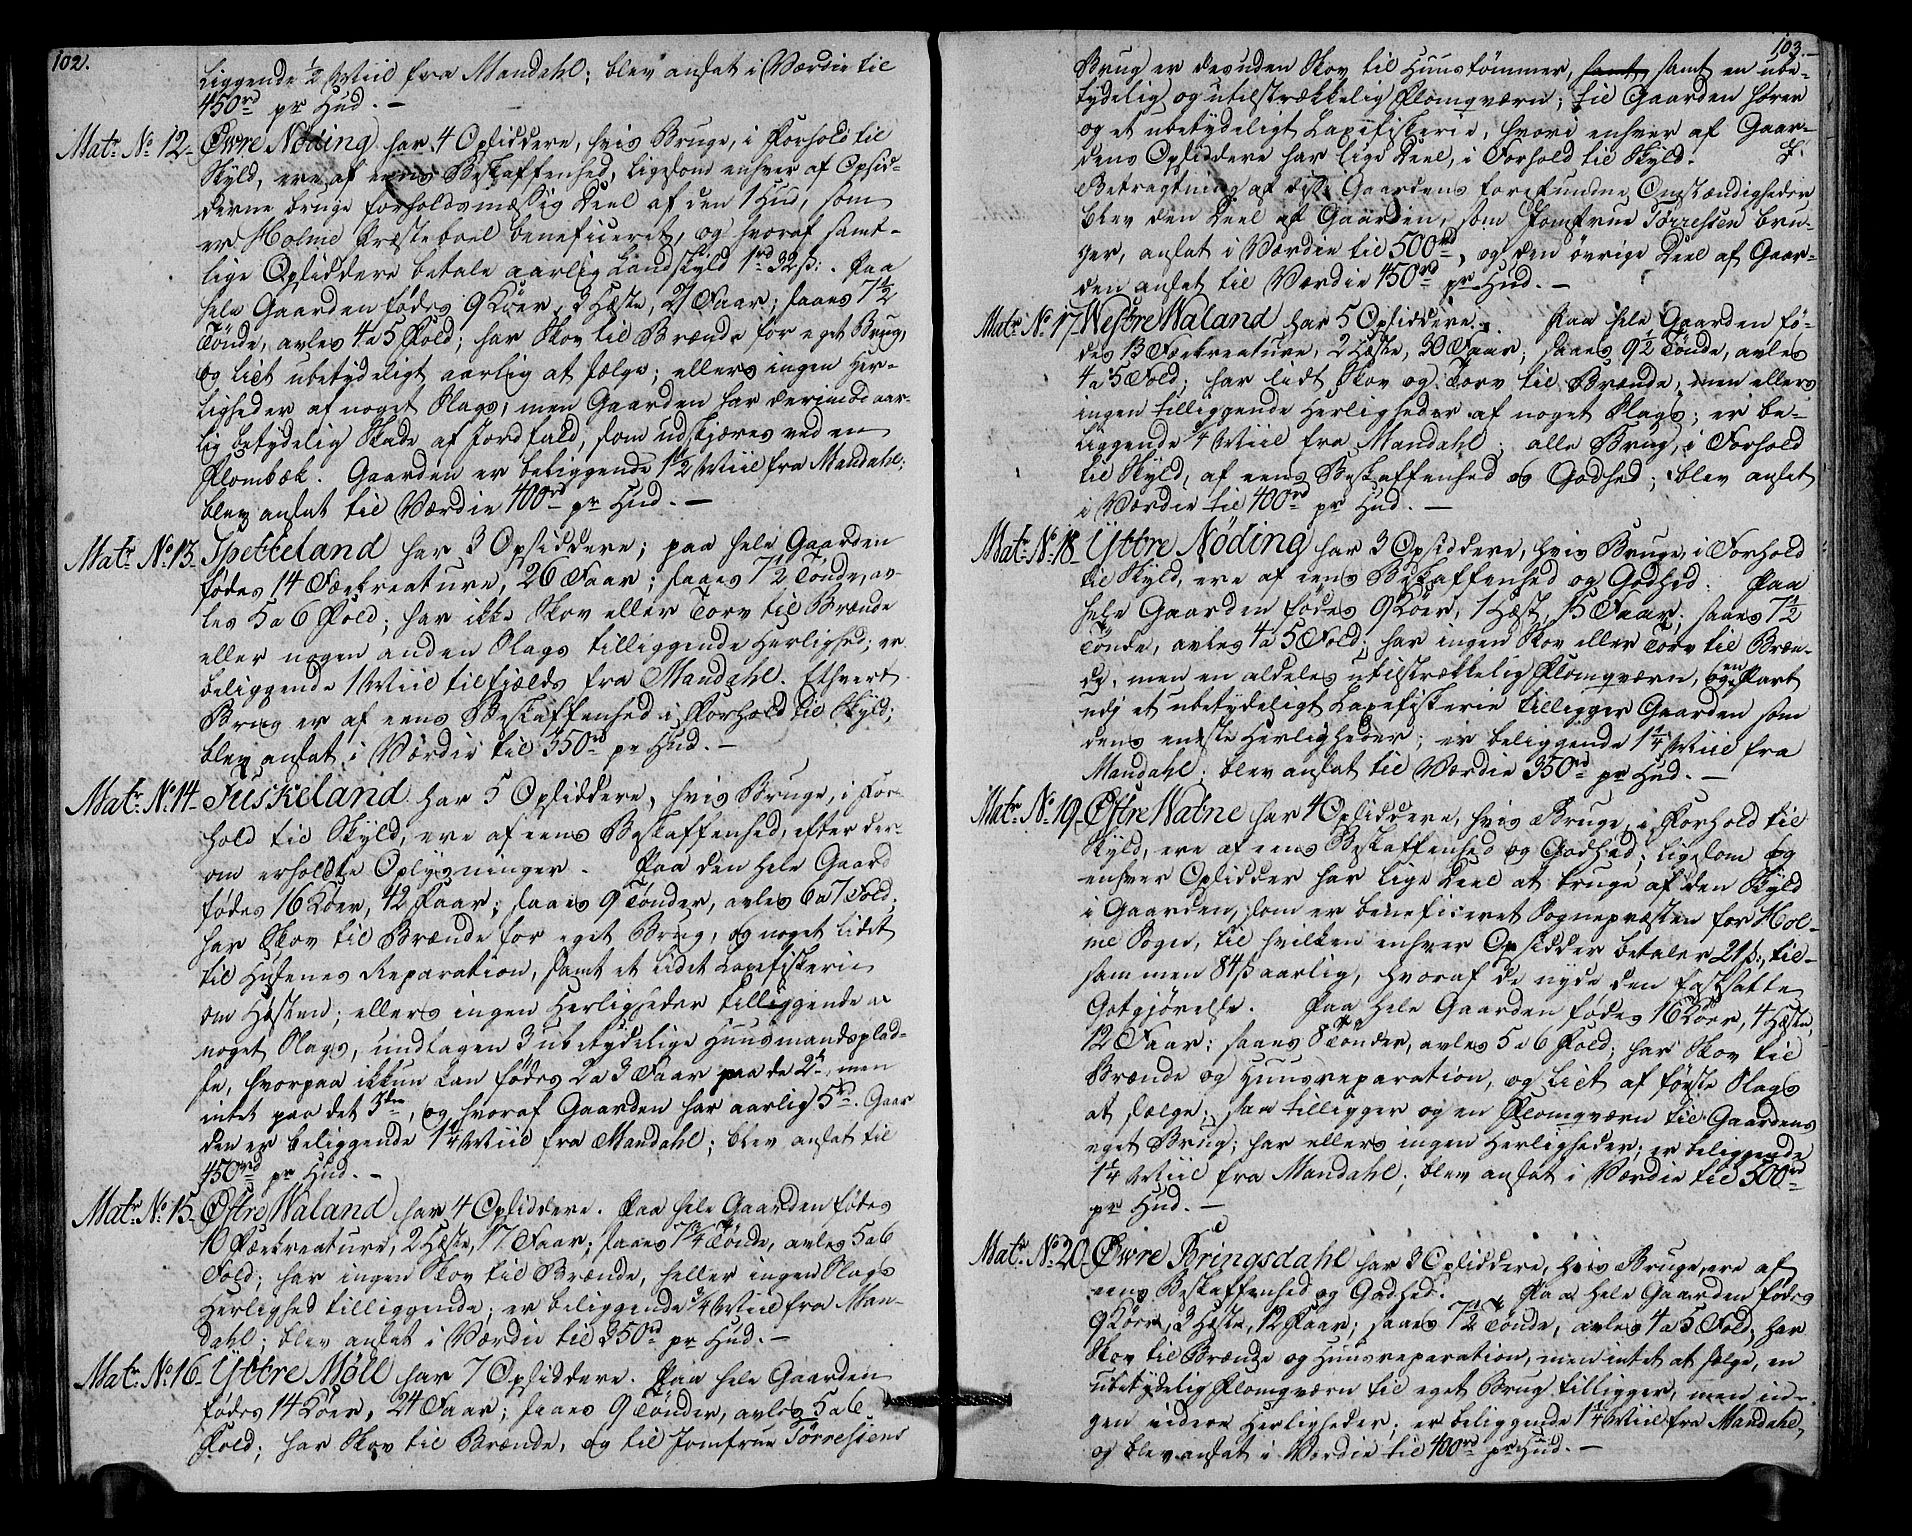 102.
liggende ½ Miil fra Mandahl; blev ansat i Værdie til
450rd pr Hud. –
Matr: No 12. Øvre Nöding har 4 Opsiddere, hvis Bruge, i Forhold til
Skyld, ere af eens Beskaffenhed, ligesom enhver af Opsid-
derne bruge forholdsmæssig Deel af den 1 Hud, som
er Holme Præsteboel beneficeret, og hvoraf samt-
lige Opsiddere betale aarlig Landskyld 1rd 32 s:. Paa
hele Gaarden födes 9 Köer, 3 Hæste, 21 Faar; saaes 7½
Tönde, avles 4 a 5 Fold; har Skov til Brænde for eget Brug,
og lidt ubetydeligt aarlig at sælge; ellers ingen Her-
ligheder af noget Slags, men Gaarden har derimod aar-
lig betydelig Skade af Jordfald, som udskjæres ved en
Flombæk. Gaarden er beliggende 1½ Miil fra Mandahl;
blev ansat til Værdie 400rd pr Hud. –
Matr: No 13. Spetteland har 3 Opsiddere; paa hele Gaarden
födes 14 Fækreature, 26 Faar; saaes 7½ Tönde, av-
les 5 a 6 Fold; har ikke Skov eller Torv til Brænde
eller nogen anden Slags tilliggende Herlighed; er
beliggende 1 Miil tilfjælds fra Mandahl. Ethvert
Brug er af eens Beskaffenhed i Forhold til Skyld;
blev ansat i Værdie til 350rd pr Hud. –
Matr: No 14. Fuskeland har 5 Opsiddere, hvis Bruge, i For-
hold til Skyld, ere af eens Beskaffenhed, efter der-
om erholdte Oplysninger. Paa den hele Gaard
födes 16 Köer, 42 Faar; saaes 9 Tönder, avles 6 a 7 Fold;
har Skov til Brænde for eget Brug, og noget lidet
til Husenes Reparation, samt et lidet Laxefiskerie
om Hösten; ellers ingen Herligheder tilliggende af
noget Slags, undtagen 3 ubetydelige Huusmandsplad-
se, hvorpaa ikkun kan födes 2 a 3 Faar paa de 2de, men
intet paa det 3die, og hvoraf Gaarden har aarlig 5rd. Gaar
den er beliggende 1¼ Miil fra Mandahl; blev ansat til
450rd pr Hud. –
Matr: No 15. Östre Waland har 4 Opsiddere. Paa hele Gaarden födes
10 Fækreature, 2 Hæste, 17 Faar; saaes 7¼ Tönde, avles 5 a 6
Fold; har ingen Skov til Brænde, heller ingen Slags
Herlighed tilliggende; er beliggende ¾ Miil fra Man-
dahl; blev ansat i Værdie til 350rd pr Hud. –
Matr: No 16. Yttre Möll har 7 Opsiddere. Paa hele Gaarden
födes 14 Köer, 24 Faar; saaes 9 Tönder, avles 5 a 6
Fold; har Skov til Brænde, og til Jomfrue Törressens
103.
Brug er desuden Skov til Huustömmer, samt, samt en ube-
tydelig og utilstrækkelig Flomqværn; til Gaarden hörer
og et ubetydeligt Laxefiskerie, hvori enhver af Gaar-
dens Opsiddere har lige Deel, i Forhold til Skyld. I
Betragtning af disse Gaardens forefundne Omstændigheder
blev den Deel af Gaarden, som Jomfrue Törressen bru-
ger, ansat i Værdie til 500rd, og den övrige Deel af Gaar-
den ansat til Værdie 450rd pr Hud. –
Matr: No 17. Westre Waland har 5 Opsiddere. Paa hele Gaarden fö-
des 13 Fækreature, 2 Hæste, 30 Faar; saaes 9½ Tönde, avles
4 a 5 Fold; har lidt Skov og Torv til Brænde, men ellers
ingen tilliggende Herligheder af noget Slags; er be-
liggende ¼ Miil fra Mandahl; alle Brug, i Forhold
til Skyld, af eens Beskaffenhed og Godhed; blev ansat
i Værdie til 400rd pr Hud. –
Matr: No 18. Yttre Nöding har 3 Opsiddere, hvis Bruge, i Forhold
til Skyld, ere af eens Beskaffenhed og Godhed. Paa
hele Gaarden födes 9 Köer, 1 Hæst, 15 Faar; saaes 7½
Tönde, avles 4 a 5 Fold; har ingen Skov eller Torv til Bræn-
de, men en aldeles utilstrækkelig Flomqværn, og en Part
udj et ubetydeligt Laxefiskerie tilligger Gaarden som
dens eneste Herligheder; er beliggende 1¼ Miil fra
Mandahl; blev ansat til Værdie 350rd pr Hud. –
Matr: No 19. Östre Watne har 4 Opsiddere, hvis Bruge, i Forhold til
Skyld, ere af eens Beskaffenhed og Godhed; ligesom og
enhver Opsidder har lige Deel at bruge af den Skyld
i Gaarden, som er beneficeret Sognepræsten for Hol-
me Sogn, til hvilken enhver Opsidder betaler 21 s:, til-
sammen 84 s aarlig, hvoraf de nyde den fastsatte
Gotgjörelse. Paa hele Gaarden födes 16 Köer, 4 Hæste,
12 Faar; saaes 8 Tönder, avles 5 a 6 Fold; har Skov til
Brænde og Huusreparation, og lidt af förste Slags
at sælge; saa tilligger og en Flomqværn til Gaardens
eget Brug; har ellers ingen Herligheder; er beliggende
1¼ Miil fra Mandahl; blev ansat i Værdie til 500rd
pr Hud. –
Matr: No 20. Øvre Bringsdahl har 3 Opsiddere, hvis Bruge, ere af
eens Beskaffenhed og Godhed. Paa hele Gaarden födes
9 Köer, 3 Hæste, 12 Faar; saaes 7½ Tönde, avles 4 a 5 Fold; har
Skov til Brænde og Huusreparation, men intet at sælge, en
ubetydelig Flomqværn til eget Brug tilligger, men in-
gen videre Herligheder; er beliggende 1¼ Miil fra Mandahl,
og blev ansat i Værdie til 400rd pr Hud. –